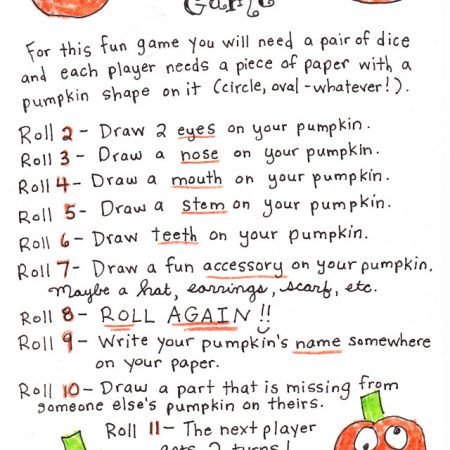 Game
For this fun game you will need a pair of dice
and each player needs a piece of paper with a
pumpkin shape on it (circle, oval - whatever!).
Roll 2 - Draw 2 eyes on your pumpkin.
Roll 3 - Draw a nose on your pumpkin.
Roll 4 - Draw a mouth on your pumpkin.
Roll 5 - Draw a stem on your pumpkin.
Roll 6 - Draw teeth on your pumpkin.
Roll 7 - Draw a fun accessory on your pumpkin.
Maybe a hat, earrings, scarf, etc.
Roll 8 - ROLL AGAIN!!
Roll 9 - Write your pumpkin's name somewhere
on your paper.
Roll 10 - Draw a part that is missing from
someone else's pumpkin on theirs.
Roll 11 - The next player
gets 2 turns!